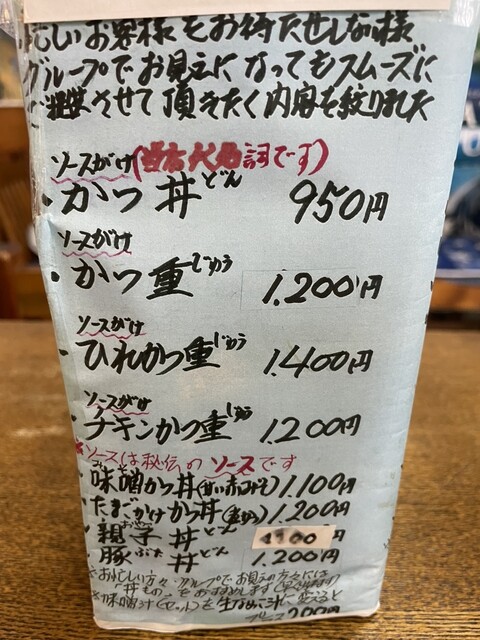 忙しいお客様もお待たせしない様
グループでお見えになってもスムーズに
提供させて頂きたく内容を絞りました
ソースがけ(当店代名詞です)
・かつ丼どん 950円
ソースがけ
・かつ重じゅう 1.200円
ソースがけ
・ひれかつ重じゅう 1.400円
ソースがけ
・チキンかつ重じゅう 1.200円
※ソースは秘伝のソースです
・味噌かつ丼(甘い赤みそ) 1.100円
・たまごがけかつ丼 1.200円
・親子丼どん 1100円
・豚ぶた丼どん 1.200円
※お忙しい方々、グループでお見えの方々には
「丼もの」をおすすめします
※味噌汁(セット)を生なめこ汁に変えると
プラス200円